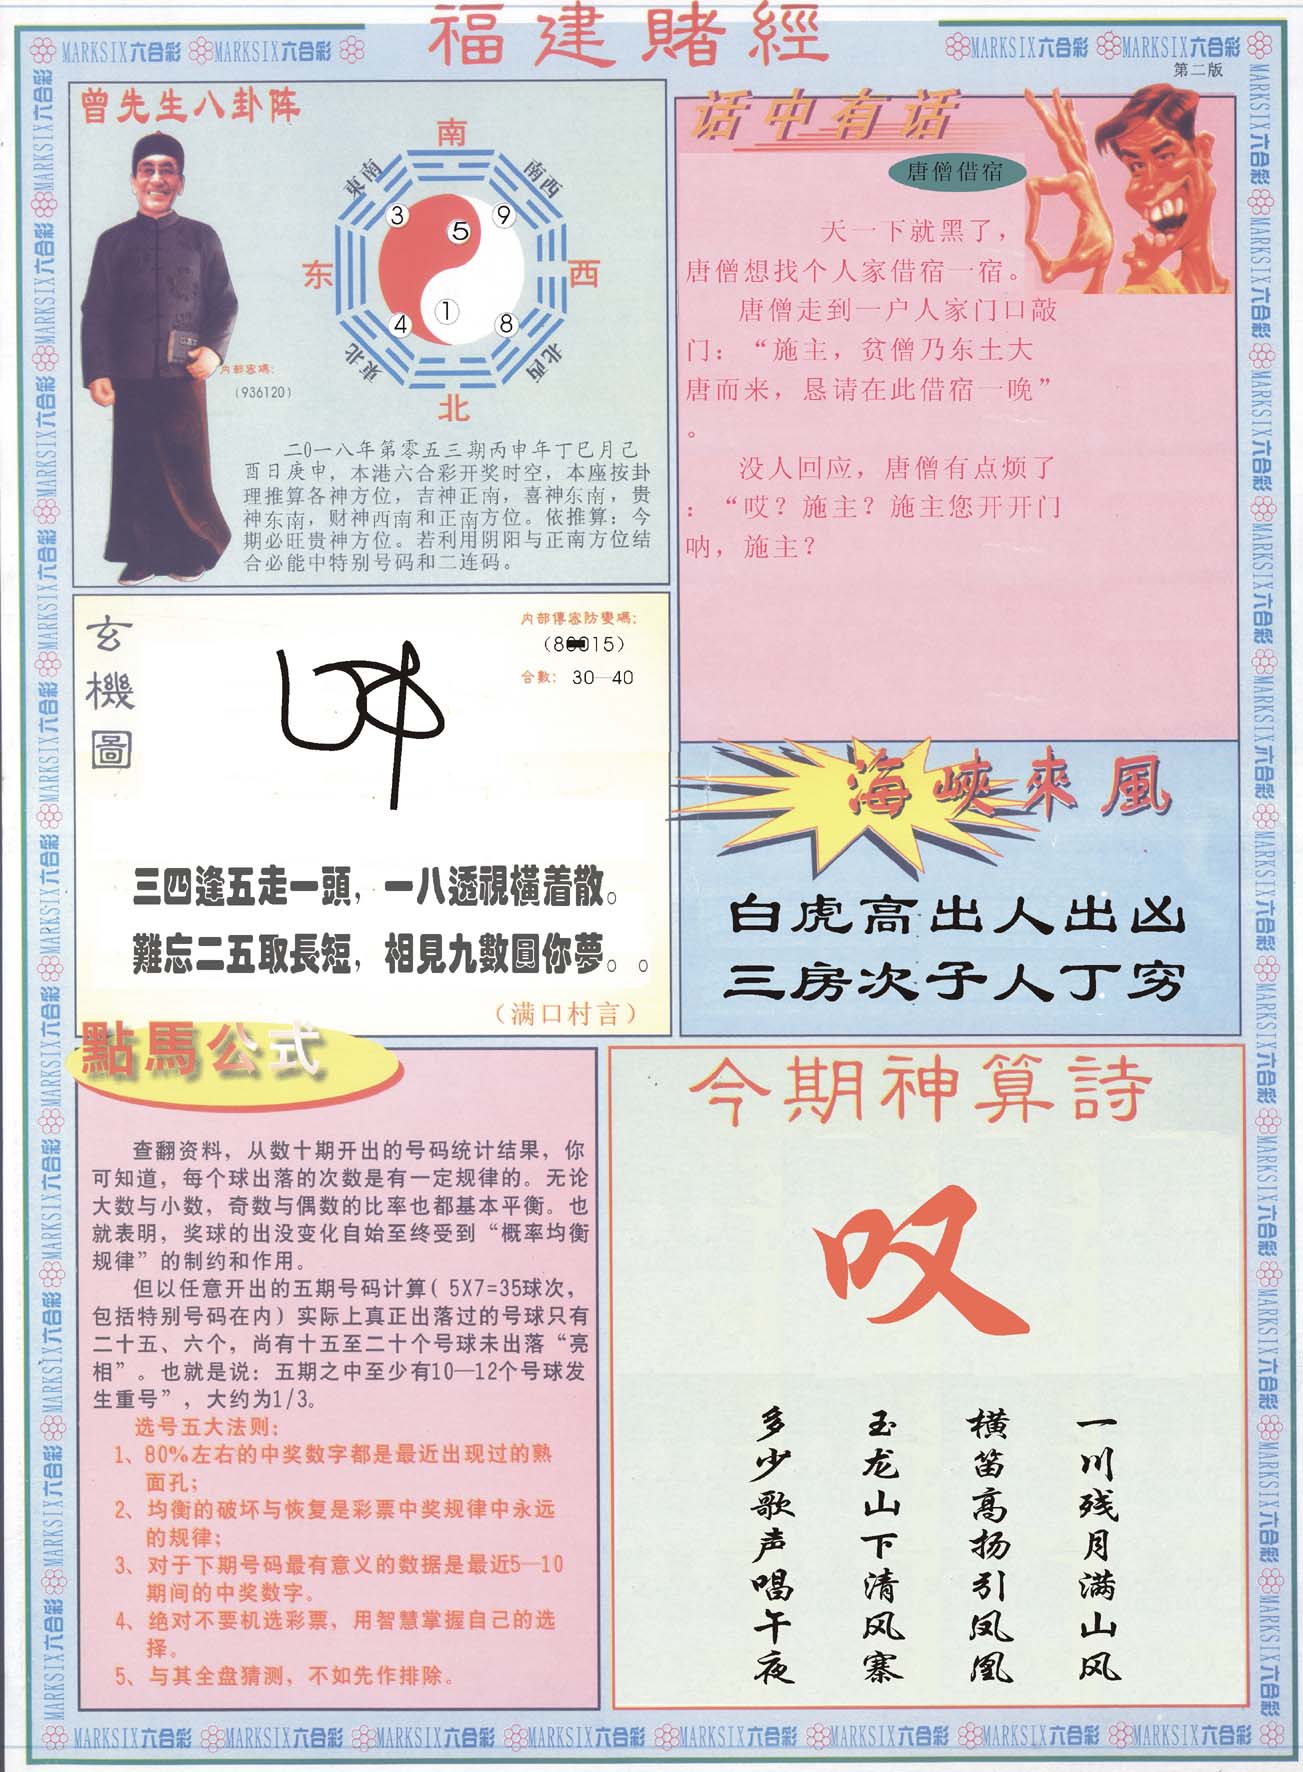 福建賭經
MARKSIX六合彩 MARKSIX六合彩
MARKSIX六合彩 MARKSIX六合彩
第二版
曾先生八卦阵
南
東南
南西
3
9
5
东
西
1
4
8
東北
北西
北
内部密碼：
（936120）
二0一八年第零五三期丙申年丁巳月己
酉日庚申，本港六合彩开奖时空，本座按卦
理推算各神方位，吉神正南，喜神东南，贵
神东南，财神西南和正南方位。依推算：今
期必旺贵神方位。若利用阴阳与正南方位结
合必能中特别号码和二连码。
话中有话
唐僧借宿
天一下就黑了，
唐僧想找个人家借宿一宿。
唐僧走到一户人家门口敲
门：“施主，贫僧乃东土大
唐而来，恳请在此借宿一晚”
。
没人回应，唐僧有点烦了
：“哎？施主？施主您开开门
呐，施主？
玄機圖
内部傳密防變碼：
合數：30—40
三四逢五走一頭，一八透視橫着散。
難忘二五取長短，相見九數圓你夢。。
（满口村言）
海峽來風
白虎高出人出凶
三房次子人丁穷
點馬公式
查翻资料，从数十期开出的号码统计结果，你
可知道，每个球出落的次数是有一定规律的。无论
大数与小数，奇数与偶数的比率也都基本平衡。也
就表明，奖球的出没变化自始至终受到“概率均衡
规律”的制约和作用。
但以任意开出的五期号码计算（5X7=35球次，
包括特别号码在内）实际上真正出落过的号球只有
二十五、六个，尚有十五至二十个号球未出落“亮
相”。也就是说：五期之中至少有10—12个号球发
生重号”，大约为1/3。
选号五大法则：
1、80%左右的中奖数字都是最近出现过的熟
面孔；
2、均衡的破坏与恢复是彩票中奖规律中永远
的规律；
3、对于下期号码最有意义的数据是最近5—10
期间的中奖数字。
4、绝对不要机选彩票，用智慧掌握自己的选
择。
5、与其全盘猜测，不如先作排除。
今期神算詩
叹
一川残月满山风
横笛高扬引凤凰
玉龙山下清风寨
多少歌声唱午夜
MARKSIX六合彩 MARKSIX六合彩 MARKSIX六合彩 MARKSIX六合彩 MARKSIX六合彩 MARKSIX六合彩 MARKSIX六合彩 MARKSIX六合彩